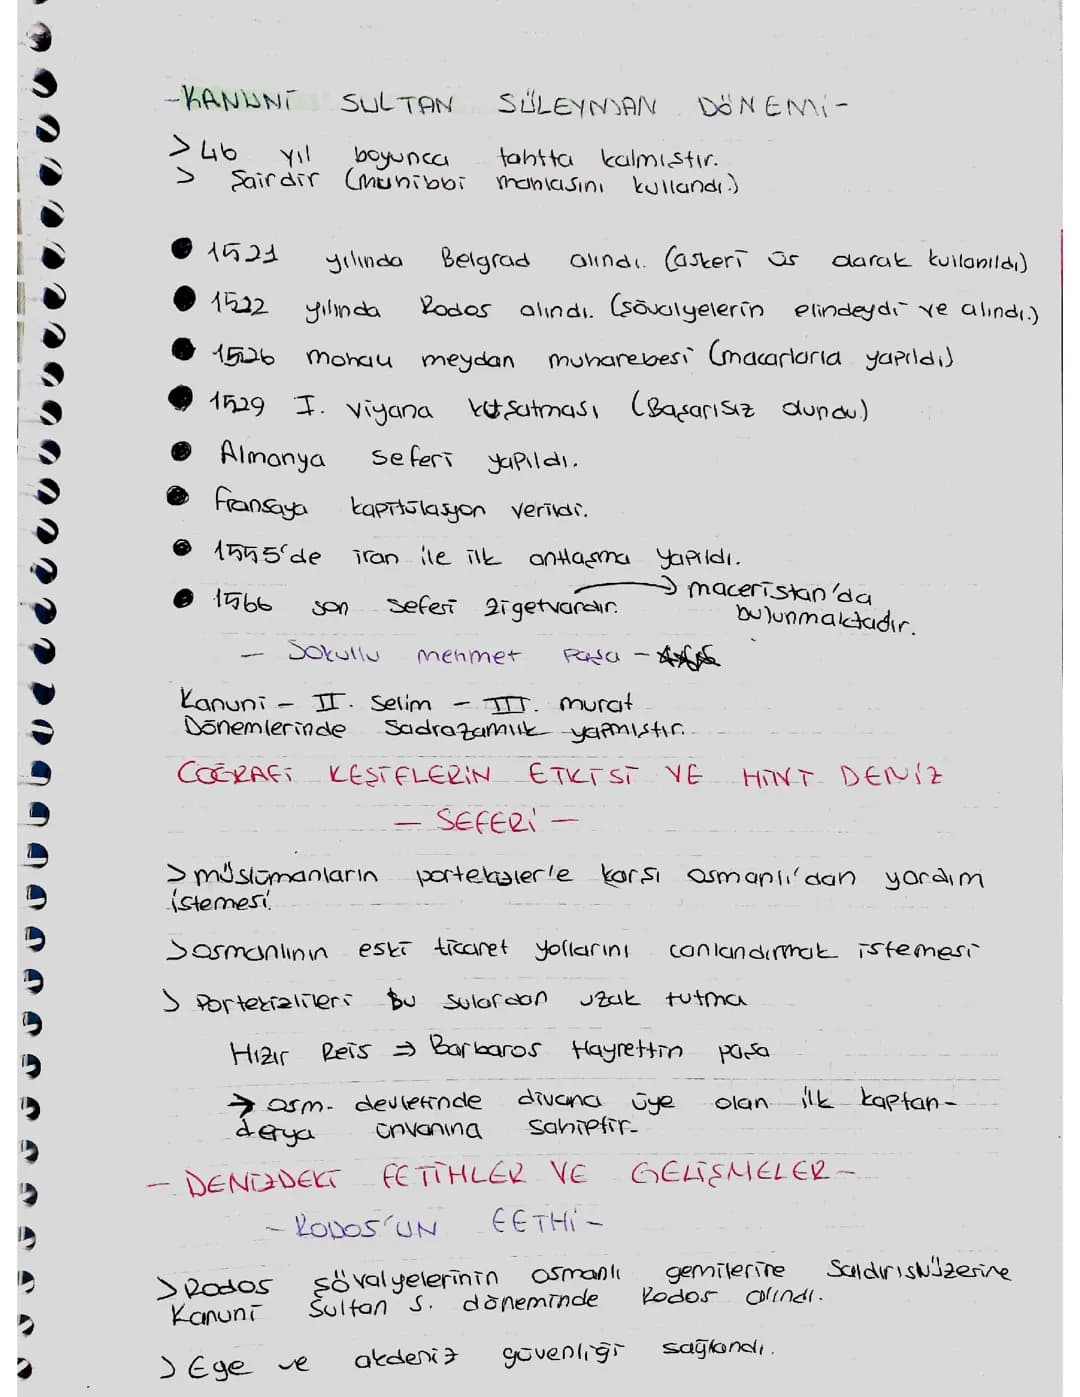 -KANUNİ SULTAN SÜLEYMAN DÖNEMİ-
> 46 yıl boyunca tahtta kalmıştır.
> Şairdir (Muhibbi mahlasını kullandı.)
● 1521 yılında Belgrad alındı. (askeri üs olarak kullanıldı)
● 1522 yılında Rodos alındı. (şövalyelerin elindeydi ve alındı.)
● 1526 mohaç meydan muharebesi (macarlarla yapıldı)
● 1529 I. Viyana kuşatması (Başarısız olundu.)
● Almanya seferi yapıldı.
● fransaya kapitülasyon verildi.
● 1555'de iran ile ilk antlaşma yapıldı.
● 1566 son seferi zigetvardır. → maceristan'da
bulunmaktadır.
- Sokullu mehmet Paşa -
Kanuni - II. Selim - III. murat
Dönemlerinde Sadrazamlık yapmıştır.
COĞRAFİ KEŞİFLERİN ETKİSİ VE HİNT DENİZ
- SEFERİ -
> müslümanların portekizler'e karşı osmanlı'dan yardım
istemesi.
> osmanlının eski ticaret yollarını canlandırmak istemesi
> Portekizlileri bu sulardan uzak tutma
Hızır Reis ⇒ Barbaros Hayrettin paşa
→ osm. devletinde divana üye olan ilk kaptan-
derya ünvanına sahiptir.
- DENİZDEKİ FETİHLER VE GELİŞMELER -
- RODOS'UN FETHİ -
> Rodos şövalyelerinin osmanlı gemilerine saldırısı üzerine
Kanuni Sultan S. döneminde Rodos alındı.
> Ege ve akdeniz güvenliği sağlandı.